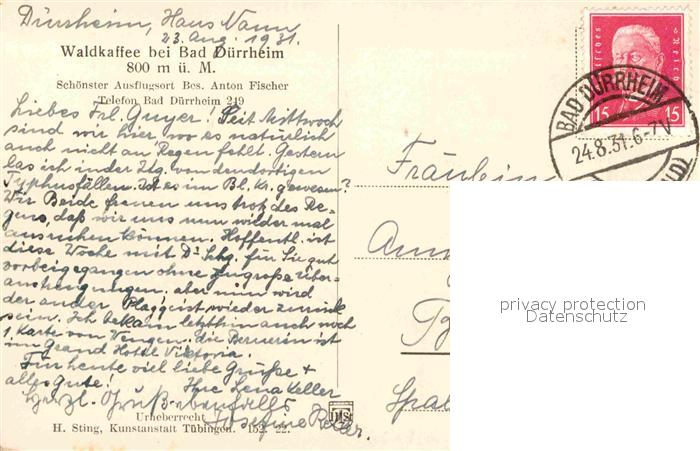 Dürrheim, Haus Nann
23. Aug. 1931.
Waldkaffee bei Bad Dürrheim
800 m ü. M.
Schönster Ausflugsort Bes. Anton Fischer
Telefon Bad Dürrheim 249
Liebes Frl. Guyer! Seit Mittwoch
sind wir hier wo es natürlich
auch nicht an Regen fehlt. Gestern
las ich in der Ztg. von den dortigen
Typhusfällen. Ist es im Bl. Kr. gewesen?
Wir Beide freuen uns trotz des Re-
gens, daß wir uns nun wieder mal
ausruhen können. Hoffentl. ist
diese Woche mit Dr. für Sie gut
vorbeigegangen ohne zu große Über-
anstrengungen. aber nun wird
der ander Plaggeist wieder zurück
sein. Ich bekam letzthin auch noch
1 Karte von Wengen. die ist
im Grand Hotel Viktoria.
Für heute viel liebe Grüße +
alles Gute! Ihre Lena Keller
Herzl. Gruß ebenfalls
Josefine Keller.
Urheberrecht
H. Sting, Kunstanstalt Tübingen. 152. 22.
HST
Deutsches Reich
15 15
BAD DÜRRHEIM
24.8.31.6-7V
Fräulein
privacy protection
Datenschutz